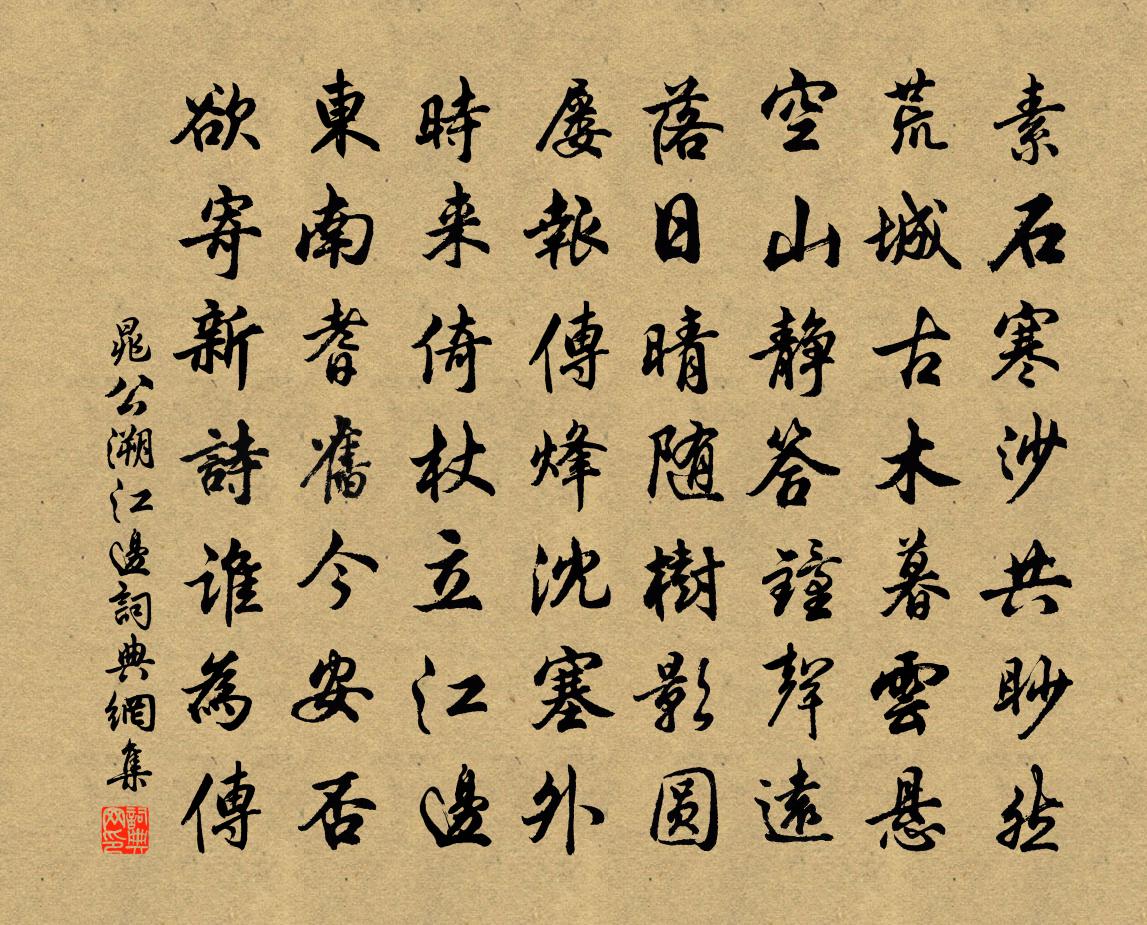 素石寒沙共眇然
荒城古木暮雲懸
空山静答鐘聲遠
落日晴随樹影圓
屡報傳烽沈塞外
時来倚杖立江邊
東南耆舊今安否
欲寄新詩誰為傳
晁公溯江邊詞典網集
詞典网印